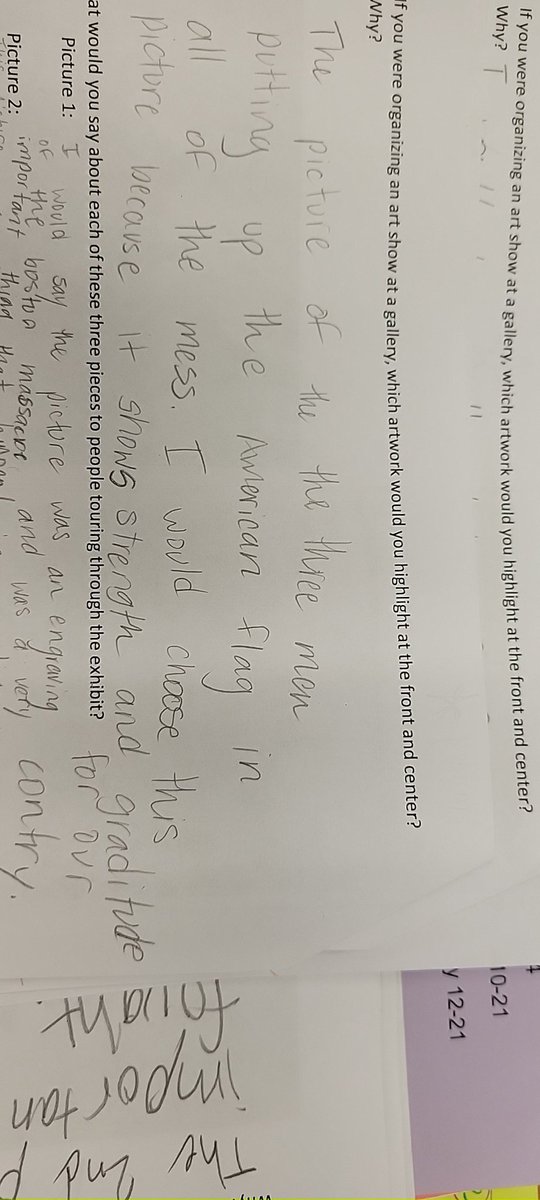 If you were organizing an art show at a gallery, which artwork would you highlight at the front and center?
Why? T
If you were organizing an art show at a gallery, which artwork would you highlight at the front and center?
Why?
The picture of the the three men
putting up the American flag in
all of the mess. I would choose this
picture because it shows strength and graditude
for our
contry.
at would you say about each of these three pieces to people touring through the exhibit?
Picture 1: I would say the picture was an engraving
of the boston massacre and was a very
Picture 2: important thing that
10-21
y 12-21
The
important
2nd